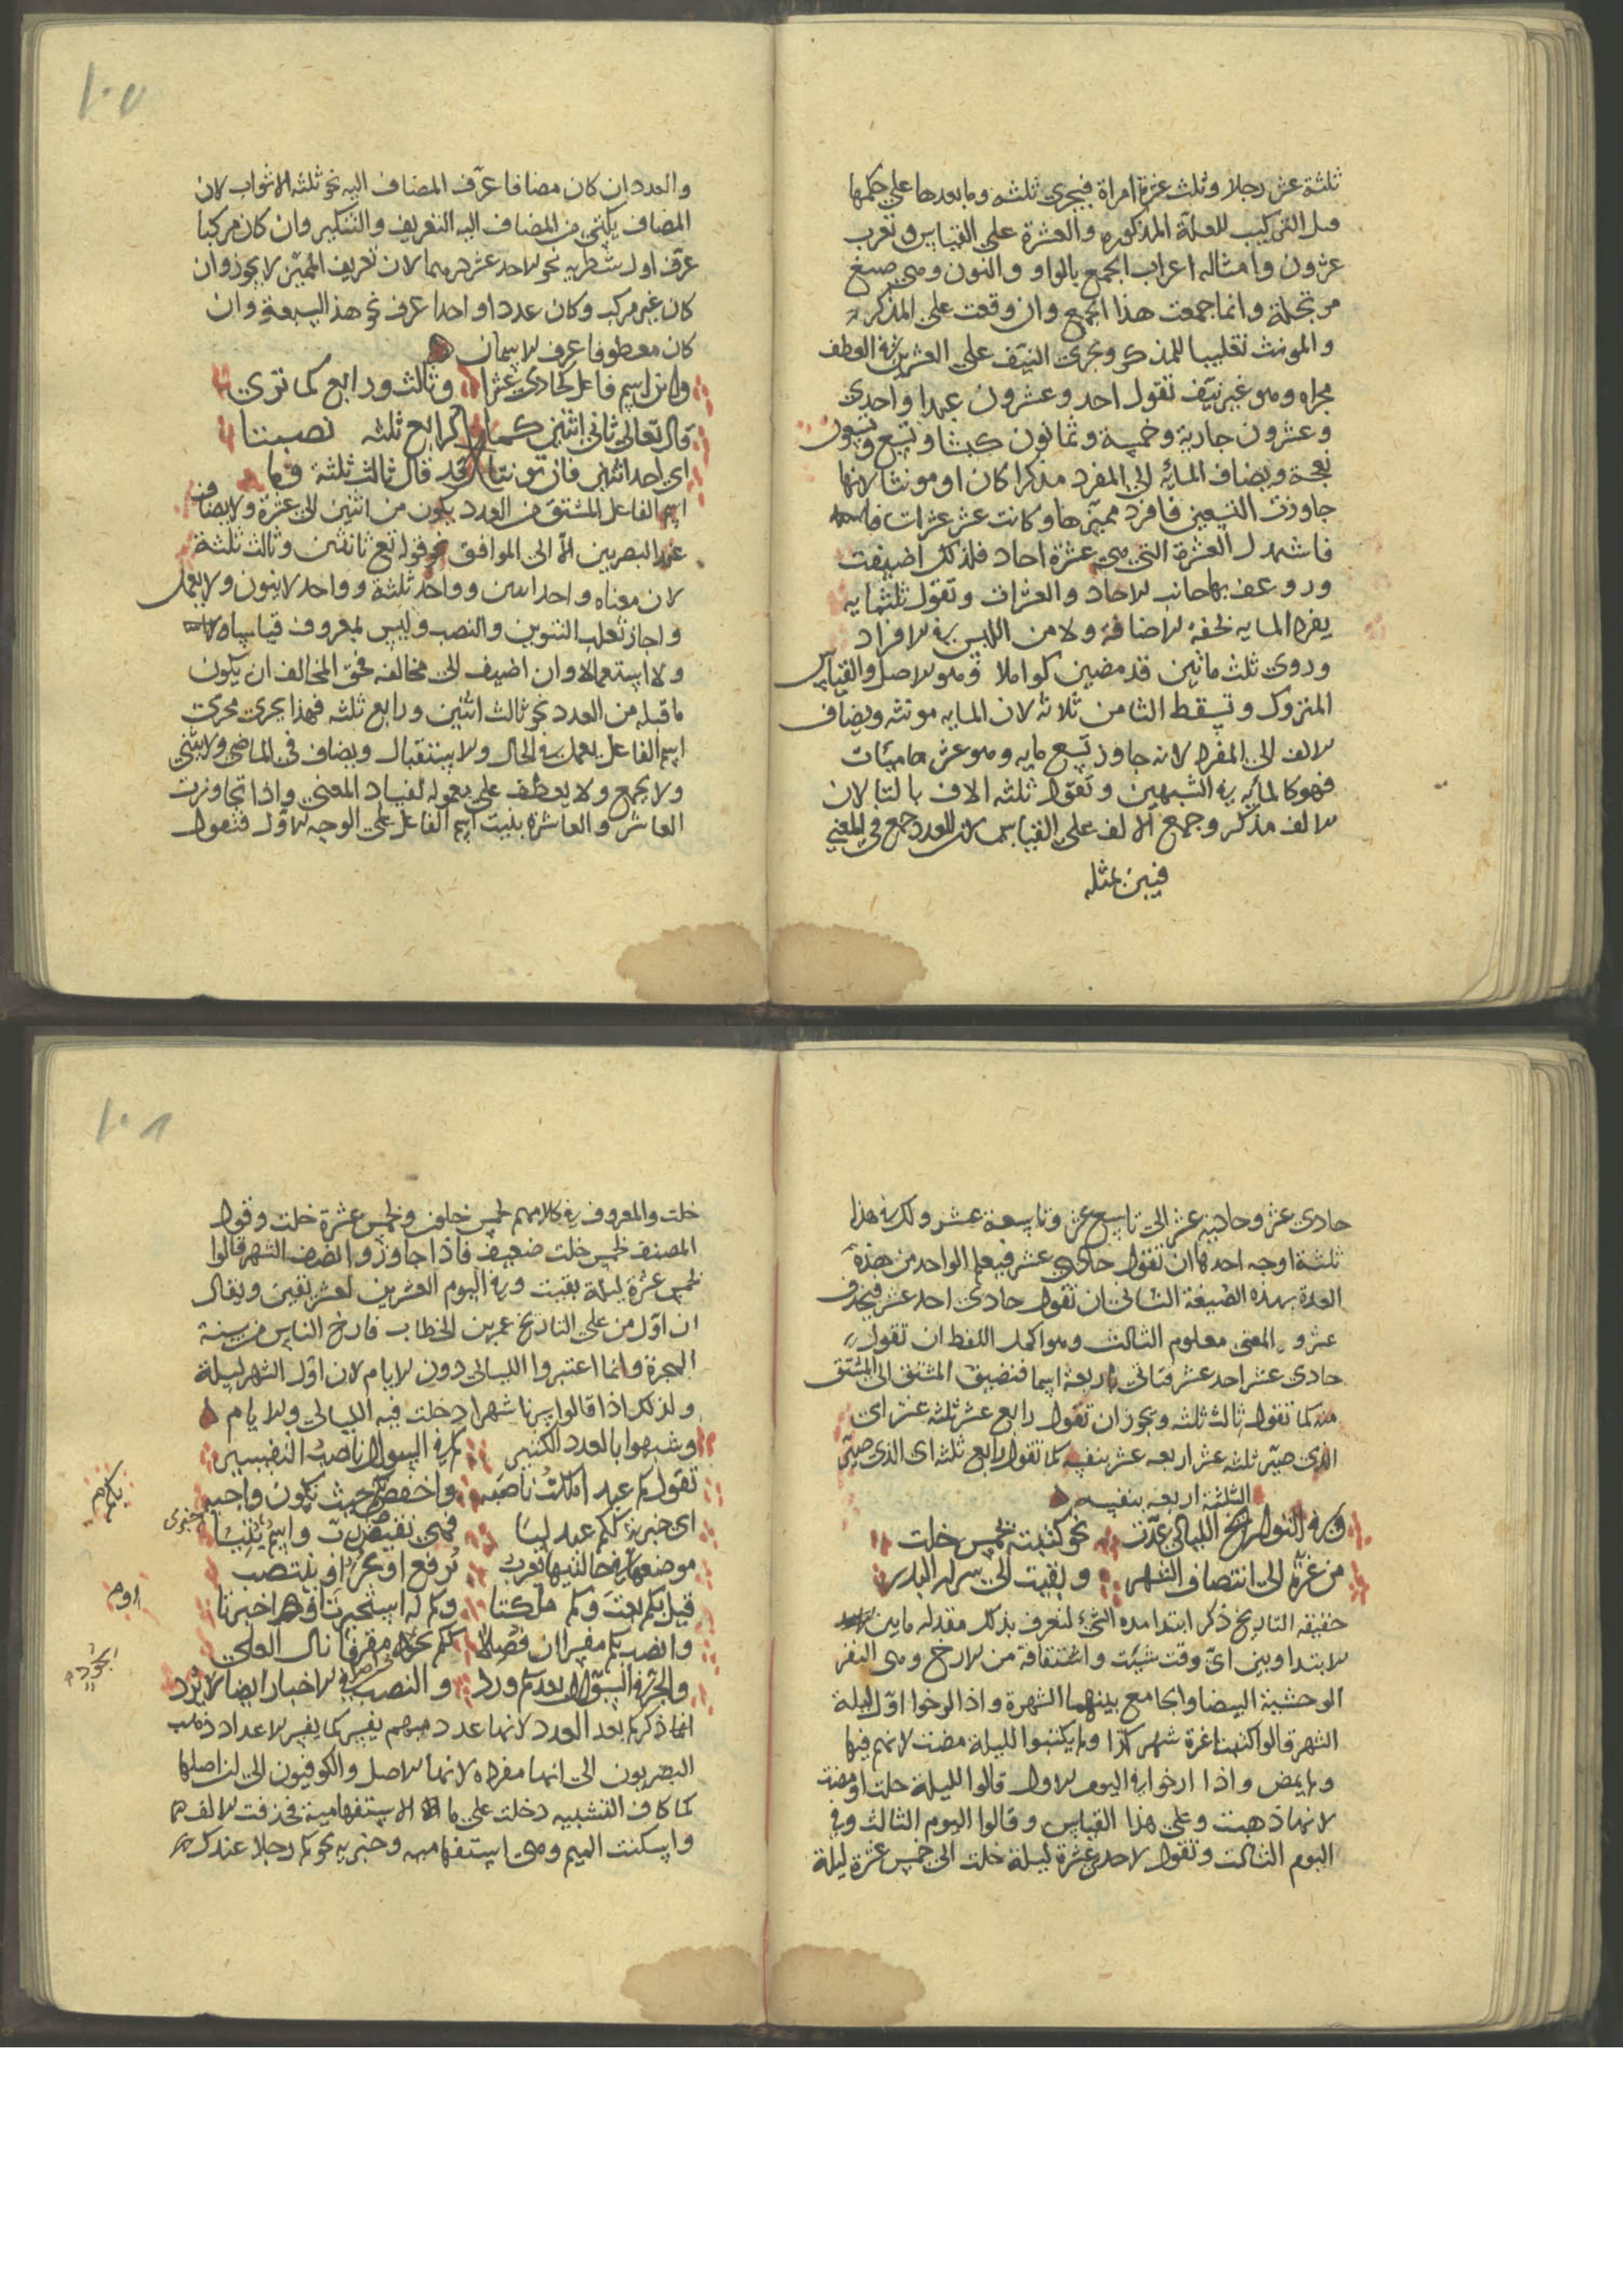 ثلثة عشر رجلا وثلث عشرة امراة فيجري ثلثه وما بعدها علي حكمها
قبل التركيب للعلة المذكوره والعشرة علي القياس وتعرب
عشرون وامثاله اعراب الجمع بالواو والنون وهي صيغ
مرتجلة وانما جمعت هذا الجمع وان وقعت علي المذكر
والمونث تغليبا للمذكر ويجري النيف علي العشرين في العطف
مجراه وهو غير نيف تقول احد وعشرون عبدا واحدي
وعشرون جارية وخمسة وثمانون كبشا وتسع وتسعون
نعجة ويضاف المائة الي المفرد مذكرا كان او مونثا لانها
جاوزت التسعين فافرد مميزها وكانت عشر عشرات
العشرة التي هي عشرة احاد فلذلك اضيفت
بها جانب الاحاد والعشرات وتقول ثلثمايه
يفرد المايه لخفة الاضافة ولامن اللبس في الافراد
وروي ثلث مائين قد مضين كواملا وهو الاصل والقياس
المتروك وتسقط التا من ثلاثة لان المايه مونثه ويضاف
الالف الي المفرد لانه جاوز تسع مايه وهو عشر ماميات
فهو كالمأيه في الشبهين وتقول ثلثه الاف بالتا لان
الالف مذكر وجمع الالف علي القياس لان العدد جمع في المعني
فبين بمثله
١٠٧
والعدد ان كان مضافا عرف المضاف اليه نحو ثلثه الاثواب لان
المضاف يكتسي من المضاف اليه التعريف والتنكير وان كان مركبا
عرف اول شطريه نحو الاحد عشر درهما لان تعريف المميز لا يجوز وان
كان غير مركب وكان عددا واحدا عرف نحو هذا السبعة وان
كان معطوفا عرف الاسمان
وابن اسم فاعل كحادي عشرا وثالث ورابع كما تري
قال تعالي ثاني اثنين كما كرابع ثلثه نصبتا
اي احد اثنين فان نونتا قد قال ثالث ثلثة وما
اسم الفاعل المشتق من العدد يكون من اثنين الي عشرة ولا يضاف
عند البصريين الا الي الموافق نحو قوله تع ثاني اثنين وثالث ثلثة
لان معناه واحد اثنين وواحد ثلثة وواحد لا ينون ولا يعمل
واجاز ثعلب التنوين والنصب وليس بمعروف قياسا
ولا استعمالا وان اضيف الي مخالفه فحق المخالف ان يكون
ما قبله من العدد نحو ثالث اثنين ورابع ثلثه فهذا يجري مجري
اسم الفاعل يعمل في الحال والاستقبال ويضاف في الماضي ولا يثني
ولا يجمع ولا يعطف علي معموله لفساد المعني واذا تجاوزت
العاشر والعاشرة بنيت اسم الفاعل علي الوجه الاول فتقول
حادي عشر وحادية عشر الي تاسع عشر وتاسعة عشر ولك في هذا
ثلثة اوجه احدها ان تقول حادي عشر فيعلم الواحد من هذه
العدة بهذه الصيغة الثاني ان تقول حادي احد عشر فيحذف
عشر والمعني معلوم الثالث وهو اكمل اللفظ ان تقول
حادي عشر احد عشر فتاتي باربعة اسما فتضيف المشتق الي المشتق
منه كما تقول ثالث ثلثه ويجوز ان تقول رابع عشر ثلثه عشر اي
الذي صير ثلثه عشر اربعه عشر بنفسه كما تقول رابع ثلثه اي الذي صير
الثلثة اربعه بنفسه
وفي التواريخ الليالي عدت نحو كتبته لخمس خلت
من غرة الي انتصاف الشهر وبقيت الي سرار البدر
حقيقه التاريخ ذكر ابتدا مده الشيء لتعرف بذلك مقدار ما بين
الابتدا وبين اي وقت شئت واشتقاقه من الارخ وهي البقر
الوحشية البيضا والجامع بينهما الشهرة واذا ارخوا اول ليلة
الشهر قالوا كتبنا غرة شهر كذا ولم يكتبوا لليلة مضت لانهم فيها
ولم يمض واذا ارخوا في اليوم الاول قالوا لليلة خلت او مضت
لانها ذهبت وعلي هذا القياس وقالوا اليوم الثالث وفي
اليوم الثالث وتقول لاحدي عشرة ليلة خلت الي خمس عشرة ليلة
١٠٨
خلت والمعروف في كلامهم لخمس خلون ولخمس عشرة خلت وقول
المصنف لخمس خلت ضعيف فاذا جاوزوا نصف الشهر قالوا
لخمس عشرة ليلة بقيت وفي اليوم العشرين لعشر بقين ويقال
ان اول من علي التاريخ عمر بن الخطاب فارخ الناس من سنة
الهجرة وانما اعتبروا الليالي دون الايام لان اول الشهر ليلة
ولذلك اذا قالوا سرنا شهرا دخلت فيه الليالي والايام
وشبهوا بالعدد الكثير كم في السوال ناصب التفسير
تقول كم عبد املكت ناصبه واخفض بكم حيث تكون واجبه
اي خبرية ككم عبد لسا فهي نقيض رب واسم بنيا
موضعها في حالتيها يعرب ترفع او يجر او ينتصب
قبل بكم بعت وكم ملكتا وكم له استخبرت او اخبرتا
وانصب بكم مفسرا ان فصلا ككم بجود مقرفا نال العلي
والجر في السوال بعد كم ورد والنصب في الاخبار ايضا لا يرد
انما ذكر كم بعد العدد لانها عدد مبهم يفسر كما يفسر الاعداد ذهب
البصريون الي انها مفرده لانها الاصل والكوفيون الي ان اصلها
كما كاف التشبيه دخلت علي ما الاستفهامية فحذفت الالف
واسكنت الميم وهي استفهاميه وخبريه نحو كم رجلا عندك
بكم